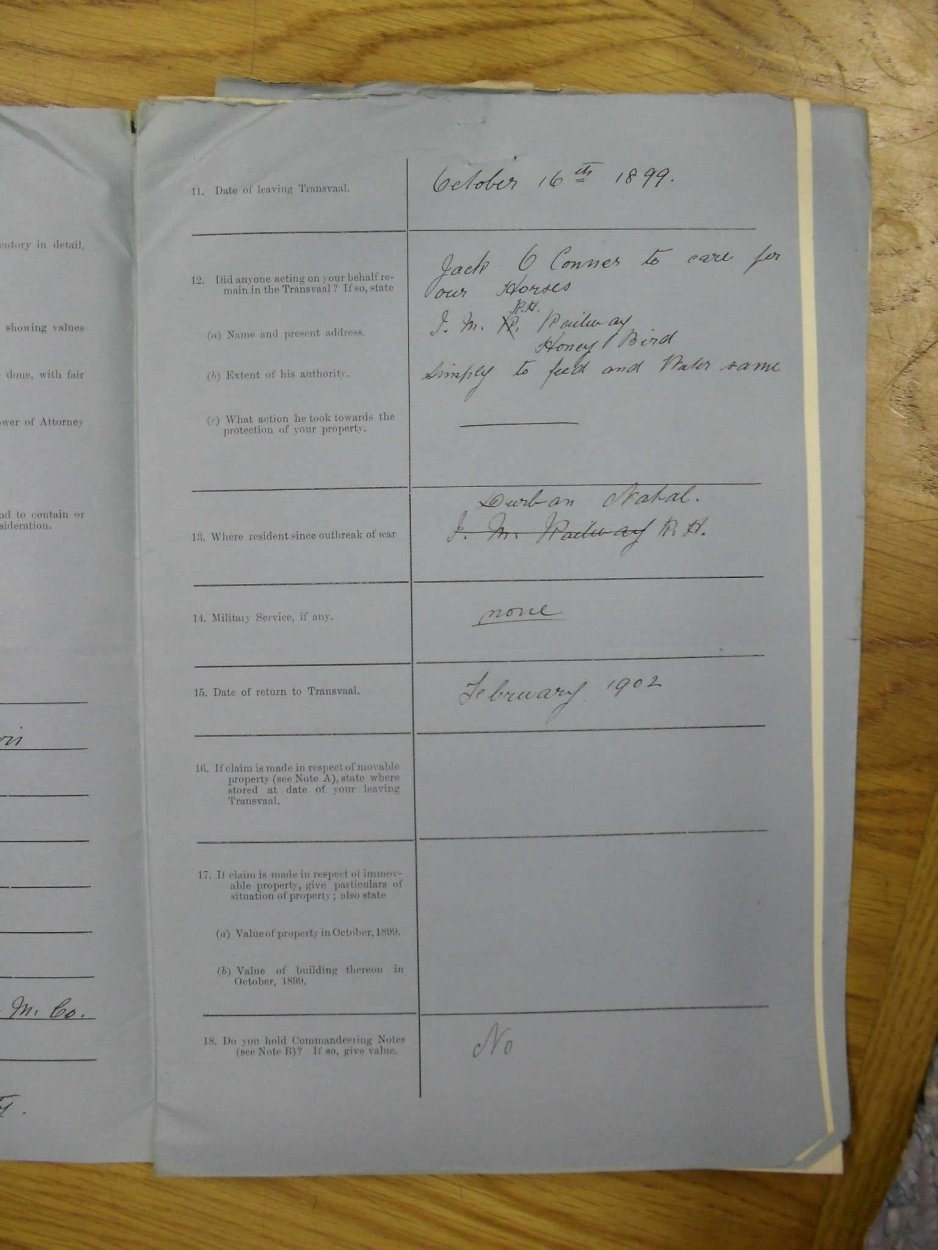 entory in detail,
showing values
done, with fair
wer of Attorney
nd to contain or
sideration.
M. Co.
11. Date of leaving Transvaal.
October 16th 1899.
12. Did anyone acting on your behalf re-
main in the Transvaal? If so, state
Jack O Conner to care for
our Horses
(a) Name and present address.
R.H.
J. M. Railway
Honey Bird
(b) Extent of his authority.
Simply to feed and Water same
(c) What action he took towards the
protection of your property.
Durban Natal.
13. Where resident since outbreak of war
J. M. Railway R. H.
14. Military Service, if any.
none
15. Date of return to Transvaal.
February 1902
16. If claim is made in respect of movable
property (see Note A), state where
stored at date of your leaving
Transvaal.
17. If claim is made in respect of immov-
able property, give particulars of
situation of property; also state
(a) Value of property in October, 1899.
(b) Value of building thereon in
October, 1899.
18. Do you hold Commandeering Notes
(see Note B)? If so, give value.
No